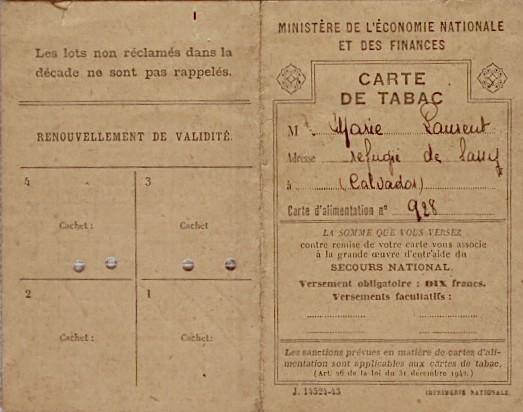 Les lots non réclamés dans la
décade ne sont pas rappelés.
RENOUVELLEMENT DE VALIDITÉ.
4
Cachet:
3
Cachet
2
Cachet:
1
Cachet:
MINISTÈRE DE L'ÉCONOMIE NATIONALE
ET DES FINANCES
CARTE
DE TABAC
M Marie Laurent
Adresse refugié de
à (Calvados)
Carte d'alimentation n° 928
LA SOMME QUE VOUS VERSEZ
contre remise de votre carte vous associe
à la grande œuvre d'entr'aide du
SECOURS NATIONAL.
Versement obligatoire : DIX francs.
Versements facultatifs :
Les sanctions prévues en matière de cartes d'ali-
mentation sont applicables aux cartes de tabac.
(Art. 26 de la loi du 31 décembre 1942.)
J. 14524-43 IMPRIMERIE NATIONALE.